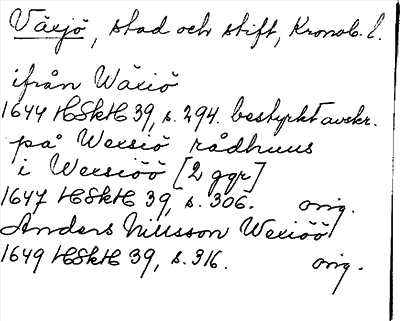 Växjö, stad och stift, Kronob. l.
ifrån Wäxiö
1644 HSkH 39, s. 294. bestyrkt avskr.
på Wexsiö rådhuus
i Wexsiöö [2 ggr]
1647 HSkH 39, s. 306. orig.
Anders Nillsson Wexiöö
1649 HSkH 39, s. 316. orig.